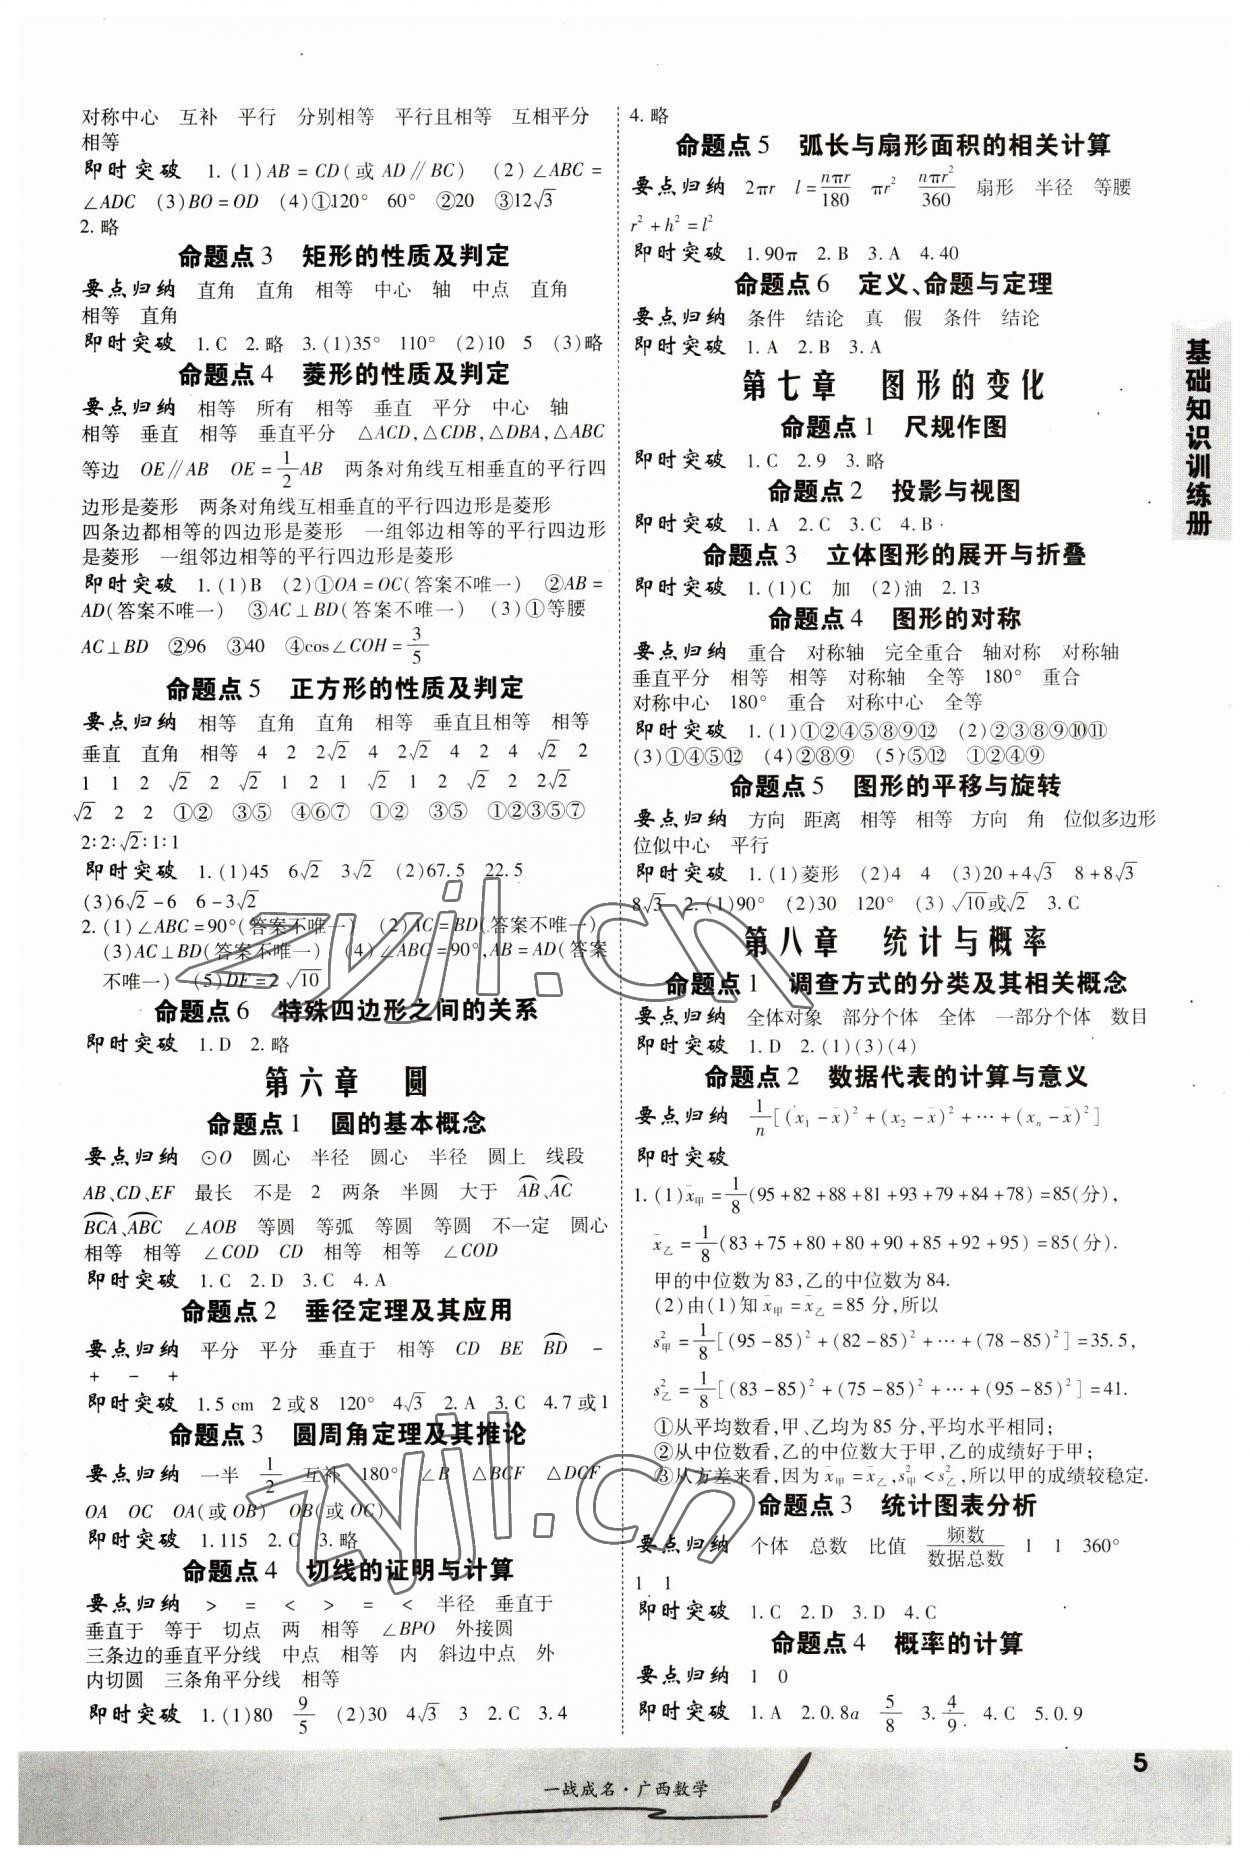 对称中心　互补　平行　分别相等　平行且相等　互相平分
相等
即时突破　1.(1)AB=CD(或AD∥BC)　(2)∠ABC=
∠ADC　(3)BO=OD　(4)①120°　60°　②20　③12√3
2.略
命题点3　矩形的性质及判定
要点归纳　直角　直角　相等　中心　轴　中点　直角
相等　直角
即时突破　1.C　2.略　3.(1)35°　110°　(2)10　5　(3)略
命题点4　菱形的性质及判定
要点归纳　相等　所有　相等　垂直　平分　中心　轴
相等　垂直　相等　垂直平分　△ACD,△CDB,△DBA,△ABC
等边　OE∥AB　OE=1/2AB　两条对角线互相垂直的平行四
边形是菱形　两条对角线互相垂直的平行四边形是菱形
四条边都相等的四边形是菱形　一组邻边相等的平行四边形
是菱形　一组邻边相等的平行四边形是菱形
即时突破　1.(1)B　(2)①OA=OC(答案不唯一)　②AB=
AD(答案不唯一)　③AC⊥BD(答案不唯一)　(3)①等腰
AC⊥BD　②96　③40　④cos∠COH=3/5
命题点5　正方形的性质及判定
要点归纳　相等　直角　直角　相等　垂直且相等　相等
垂直　直角　相等　4　2　2√2　4　2√2　4　2　4　√2　2
1　1　2　√2　2　√2　1　2　1　√2　1　2　√2　2　2√2
√2　2　2　①②　③⑤　④⑥⑦　①②　③⑤　①②③⑤⑦
2:2:√2:1:1
即时突破　1.(1)45　6√2　3√2　(2)67.5　22.5
(3)6√2-6　6-3√2
2.(1)∠ABC=90°(答案不唯一)　(2)AC=BD(答案不唯一)
(3)AC⊥BD(答案不唯一)　(4)∠ABC=90°,AB=AD(答案
不唯一)　(5)DF=2√10
命题点6　特殊四边形之间的关系
即时突破　1.D　2.略
第六章　圆
命题点1　圆的基本概念
要点归纳　⊙O　圆心　半径　圆心　半径　圆上　线段
AB、CD、EF　最长　不是　2　两条　半圆　大于　A͡B、A͡C
B͡CA、A͡BC　∠AOB　等圆　等弧　等圆　等圆　不一定　圆心
相等　相等　∠COD　CD　相等　相等　∠COD
即时突破　1.C　2.D　3.C　4.A
命题点2　垂径定理及其应用
要点归纳　平分　平分　垂直于　相等　CD　BE　B͡D　-
+　-　+
即时突破　1.5 cm　2或8　120°　4√3　2.A　3.C　4.7或1
命题点3　圆周角定理及其推论
要点归纳　一半　1/2　互补　180°　∠B　△BCF　△DCF
OA　OC　OA(或OB)　OB(或OC)
即时突破　1.115　2.C　3.略
命题点4　切线的证明与计算
要点归纳　>　=　<　>　=　<　半径　垂直于
垂直于　等于　切点　两　相等　∠BPO　外接圆
三条边的垂直平分线　中点　相等　内　斜边中点　外
内切圆　三条角平分线　相等
即时突破　1.(1)80　9/5　(2)30　4√3　3　2.C　3.4
4.略
命题点5　弧长与扇形面积的相关计算
要点归纳　2πr　l=nπr/180　πr²　nπr²/360　扇形　半径　等腰
r²+h²=l²
即时突破　1.90π　2.B　3.A　4.40
命题点6　定义、命题与定理
要点归纳　条件　结论　真　假　条件　结论
即时突破　1.A　2.B　3.A
第七章　图形的变化
命题点1　尺规作图
即时突破　1.C　2.9　3.略
命题点2　投影与视图
即时突破　1.A　2.C　3.C　4.B
命题点3　立体图形的展开与折叠
即时突破　1.(1)C　加　(2)油　2.13
命题点4　图形的对称
要点归纳　重合　对称轴　完全重合　轴对称　对称轴
垂直平分　相等　相等　对称轴　全等　180°　重合
对称中心　180°　重合　对称中心　全等
即时突破　1.(1)①②④⑤⑧⑨⑫　(2)②③⑧⑨⑩⑪
(3)①④⑤⑫　(4)②⑧⑨　(5)⑤⑫　①②④⑨
命题点5　图形的平移与旋转
要点归纳　方向　距离　相等　相等　方向　角　位似多边形
位似中心　平行
即时突破　1.(1)菱形　(2)4　4　(3)20+4√3　8+8√3
8√3　2.(1)90°　(2)30　120°　(3)√10或√2　3.C
第八章　统计与概率
命题点1　调查方式的分类及其相关概念
要点归纳　全体对象　部分个体　全体　一部分个体　数目
即时突破　1.D　2.(1)(3)(4)
命题点2　数据代表的计算与意义
要点归纳　1/n[(x₁-x̄)²+(x₂-x̄)²+…+(xₙ-x̄)²]
即时突破
1.(1)x̄甲=1/8(95+82+88+81+93+79+84+78)=85(分),
x̄乙=1/8(83+75+80+80+90+85+92+95)=85(分).
甲的中位数为83,乙的中位数为84.
(2)由(1)知x̄甲=x̄乙=85分,所以
s²甲=1/8[(95-85)²+(82-85)²+…+(78-85)²]=35.5,
s²乙=1/8[(83-85)²+(75-85)²+…+(95-85)²]=41.
①从平均数看,甲、乙均为85分,平均水平相同;
②从中位数看,乙的中位数大于甲,乙的成绩好于甲;
③从方差来看,因为x̄甲=x̄乙,s²甲<s²乙,所以甲的成绩较稳定.
命题点3　统计图表分析
要点归纳　个体　总数　比值　频数/数据总数　1　1　360°
1　1
即时突破　1.C　2.D　3.D　4.C
命题点4　概率的计算
要点归纳　1　0
即时突破　1.A　2.0.8a　5/8　3.4/9　4.C　5.0.9
基础知识训练册
zyjl.cn
zyjl.cn
一战成名·广西数学
5